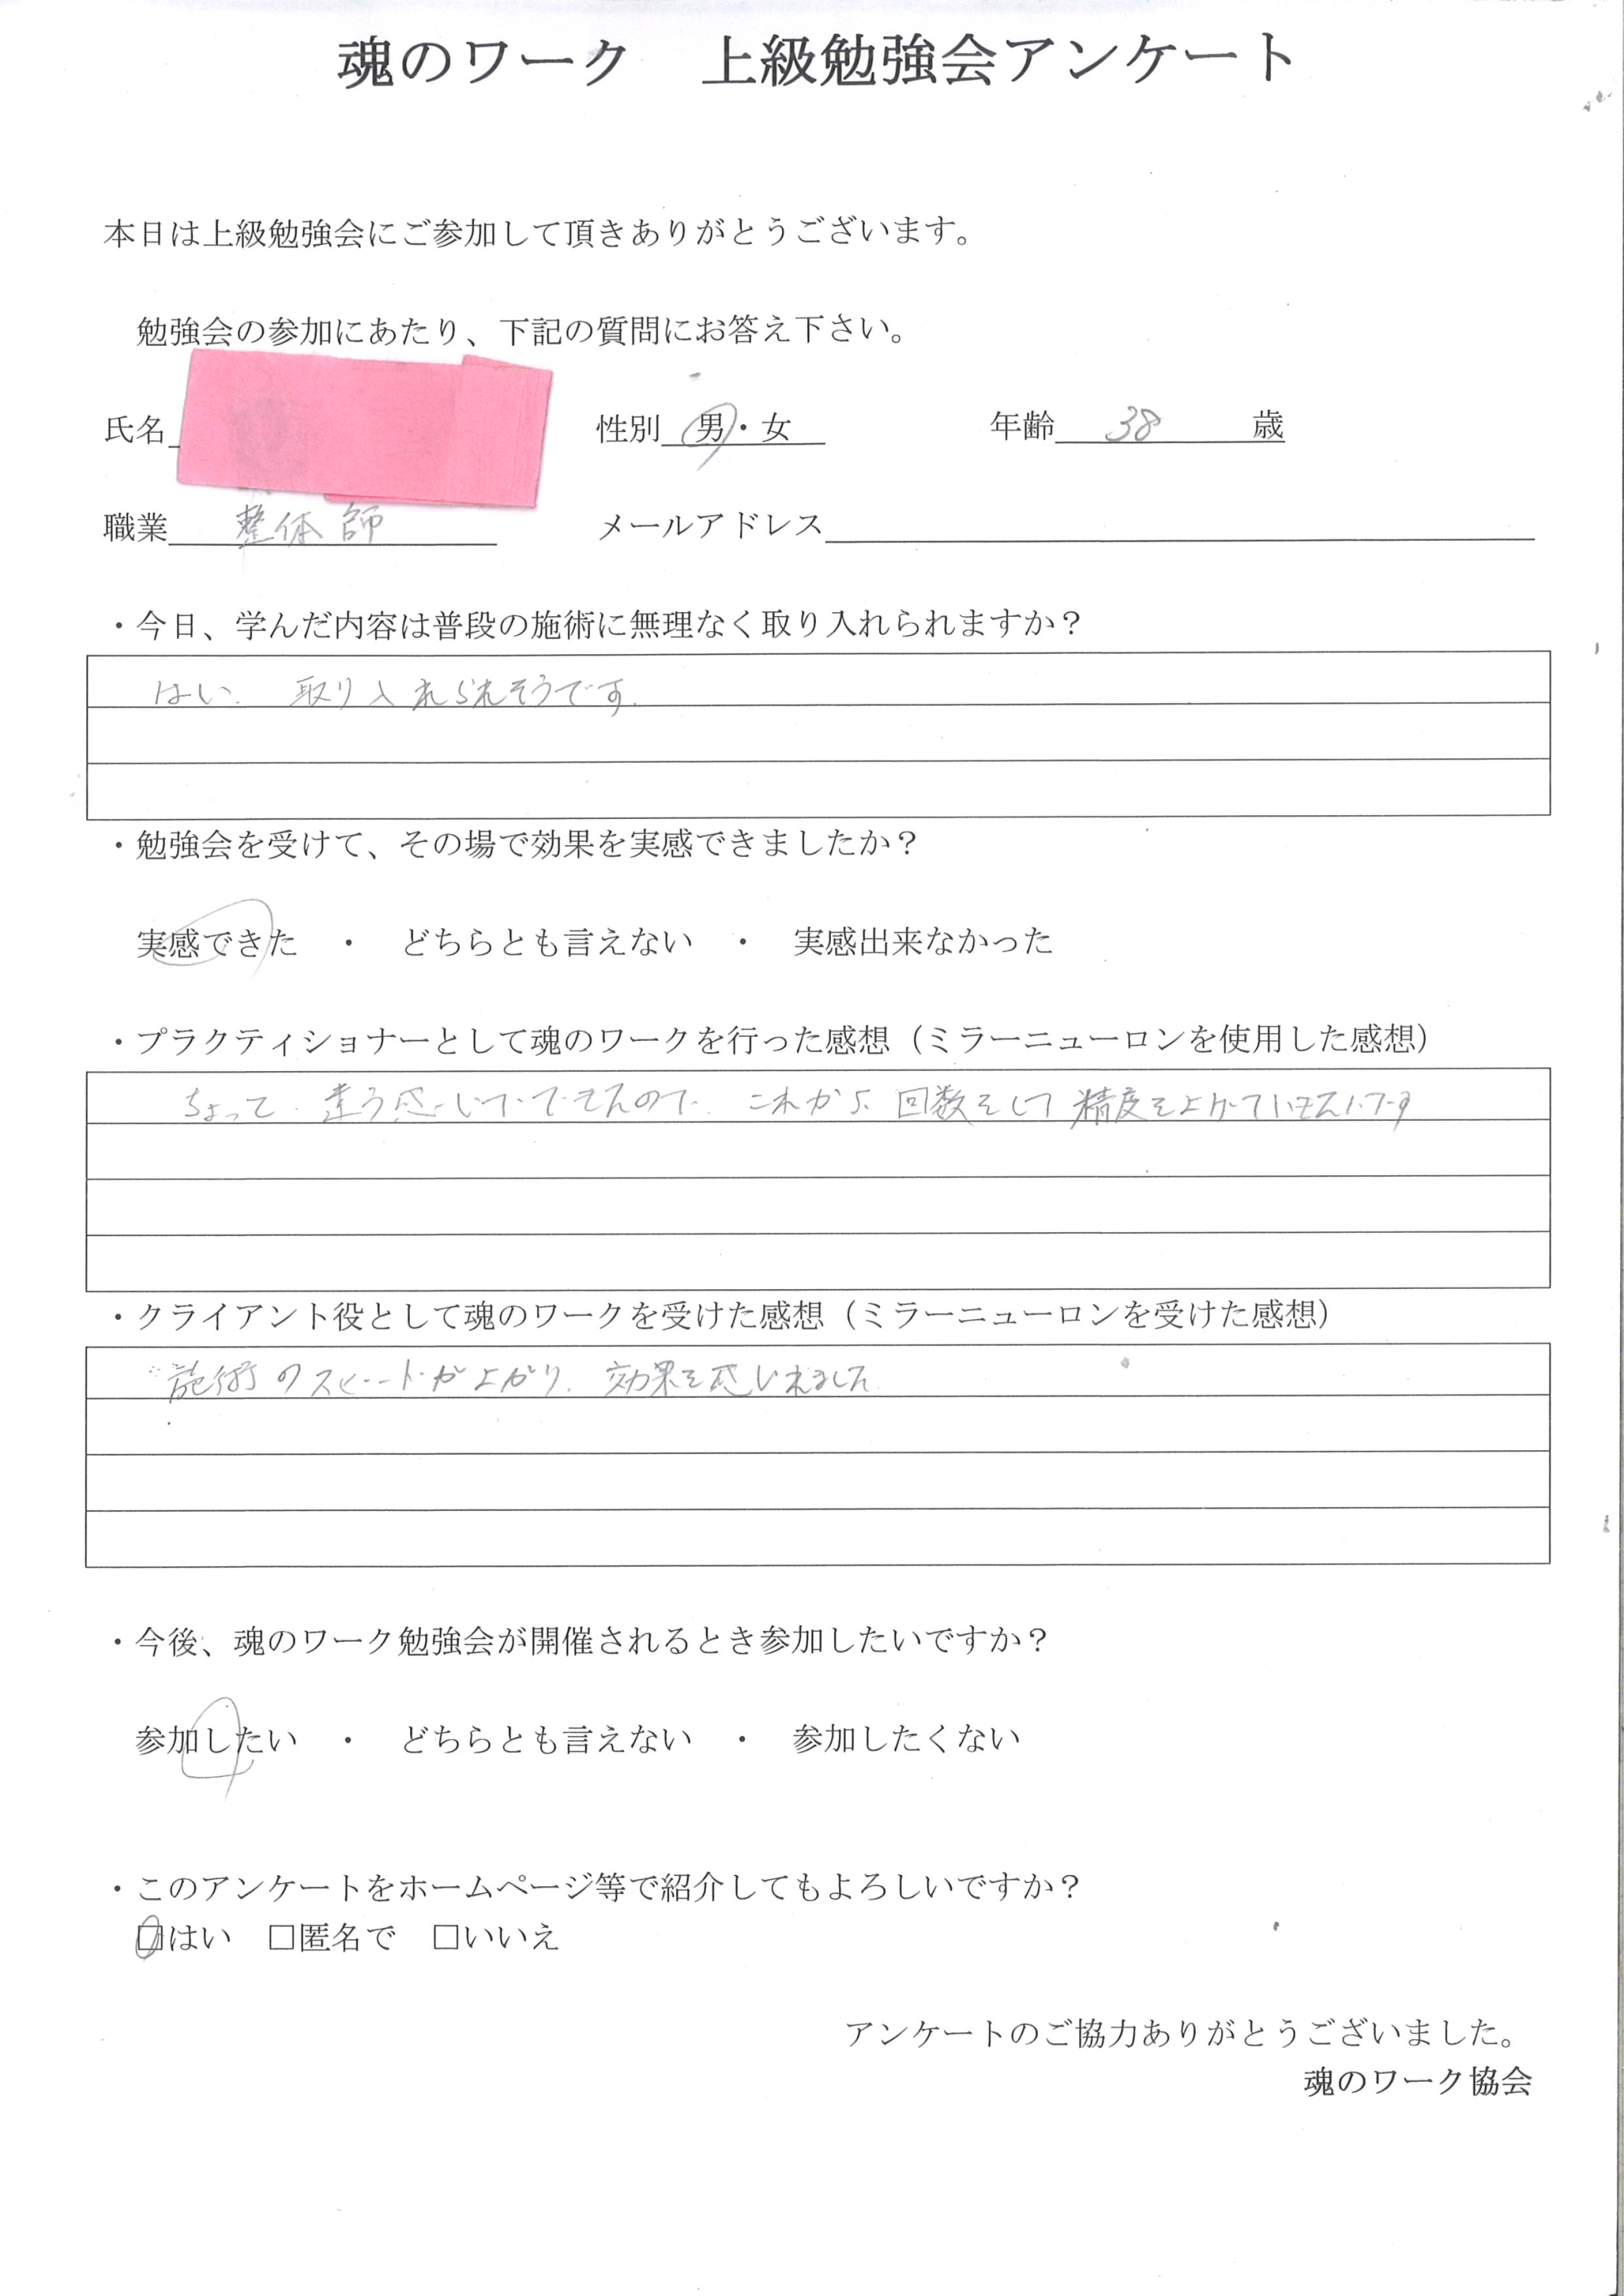 魂のワーク　上級勉強会アンケート
本日は上級勉強会にご参加して頂きありがとうございます。
勉強会の参加にあたり、下記の質問にお答え下さい。
氏名 性別 男・女 年齢 38 歳
職業 整体師 メールアドレス
・今日、学んだ内容は普段の施術に無理なく取り入れられますか？
はい、取り入れられそうです。
・勉強会を受けて、その場で効果を実感できましたか？
実感できた　・　どちらとも言えない　・　実感出来なかった
・プラクティショナーとして魂のワークを行った感想（ミラーニューロンを使用した感想）
ちょっと 違う感じで できたので、これから 回数をして 精度を上げていきたいです
・クライアント役として魂のワークを受けた感想（ミラーニューロンを受けた感想）
施術のスピードが上がり、効果を感じれました
・今後、魂のワーク勉強会が開催されるとき参加したいですか？
参加したい　・　どちらとも言えない　・　参加したくない
・このアンケートをホームページ等で紹介してもよろしいですか？
□はい　□匿名で　□いいえ
アンケートのご協力ありがとうございました。
魂のワーク協会